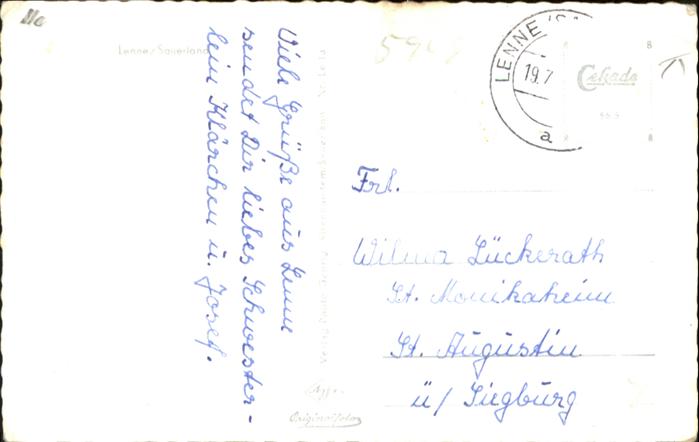 Lenne/Sauerland
Viele Grüße aus Lenne
sendet Dir liebes Schwester-
lein Klärchen u. Josef.
594
LENNE
19.7
a
Cekade
B
Frl.
Wilma Lückerath
St. Monikaheim
St. Augustin
ü/ Siegburg
Agfa-
Originalfoto